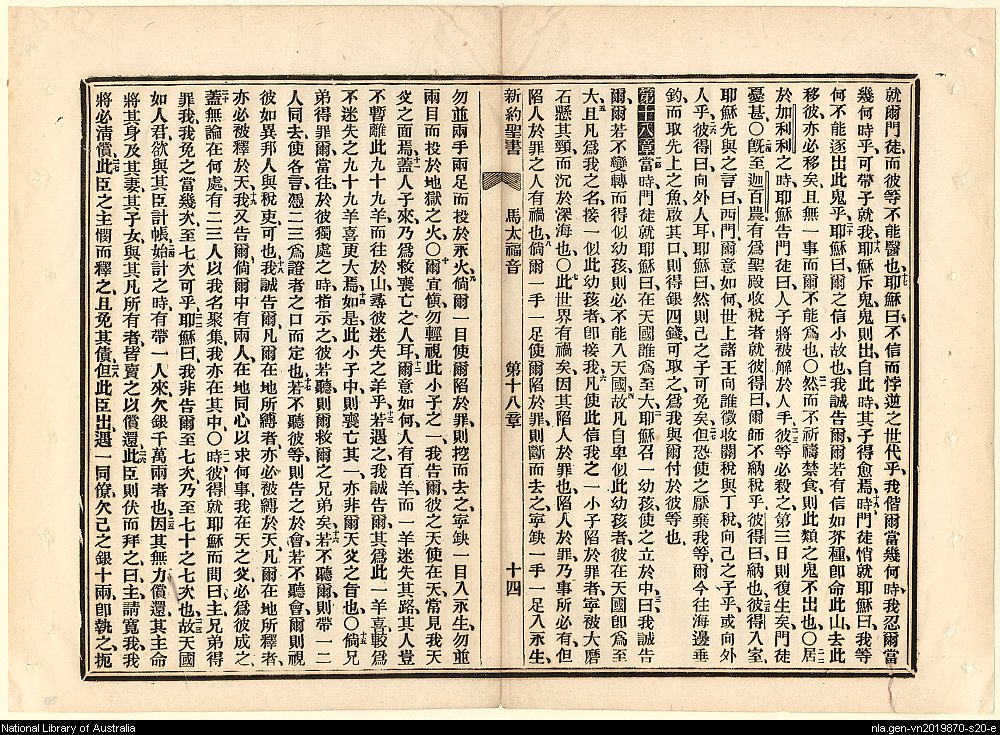 就爾門徒、而彼等不能醫也、耶穌曰、不信而悖道之世代乎、我偕爾當幾何時、我忍爾當
幾何時乎、可帶子就我、耶穌斥鬼、鬼則出、自此時其子得愈焉、時門徒悄就耶穌曰、我等
何不能逐出此鬼乎、耶穌曰、爾之信小故也、我誠告爾、爾若有信如芥種、卽命此山去此
移彼、亦必移矣、且無一事而爾不能爲也、○然而不祈禱禁食、則此類之鬼不出也、○居
於加利利之時、耶穌告門徒曰、人子將被解於人手、彼等必殺之、第三日則復生矣、門徒
憂甚、○旣至迦百農、有爲聖殿收稅者、就彼得曰、爾師不納稅乎、彼得曰、納也、彼得入室、
耶穌先與之言曰、西門爾意如何、世上諸王向誰徵收關稅與丁稅、向己之子乎、或向外
人乎、彼得曰、向外人耳、耶穌曰、然則己之子可免矣、但恐使之厭棄我等、爾今往海邊垂
釣、而取先上之魚、啟其口、則得銀四錢、可取之爲我與爾付於彼等也、
第十八章 當時門徒就耶穌曰、在天國誰爲至大、耶穌召一幼孩、使之立於中、曰、我誠告
爾、爾若不變轉而得似幼孩、則必不能入天國、故凡自卑似此幼孩者、彼在天國卽爲至
大、且凡爲我之名、接一似此幼孩者、卽接我、凡使此信我之一小子陷於罪者、寧被大磨
石懸其頸、而沉於深海也、○此世界有禍矣、因其陷人於罪也、陷人於罪、乃事所必有、但
陷人於罪之人有禍也、倘爾一手一足使爾陷於罪、則斷而去之、寧缺一手一足入永生、
新約聖書 馬太福音 第十八章 十四
勿並兩手兩足而投於永火、倘爾一目使爾陷於罪、則挖而去之、寧缺一目入永生、勿並
兩目而投於地獄之火、○爾宜愼、勿輕視此小子之一、我告爾、彼之天使在天、常見我天
父之面焉、蓋人子來、乃爲救喪亡之人耳、爾意如何、人有百羊、而一羊迷失其路、其人豈
不暫離此九十九羊、而往於山、尋彼迷失之羊乎、若遇之、我誠告爾、其爲此一羊喜、較爲
不迷失之九十九羊喜更大焉、如是此小子中、則喪亡其一、亦非爾天父之旨也、○倘兄
弟得罪爾、當往於彼獨處之時指示之、彼若聽、則爾救爾之兄弟矣、若不聽爾、則帶一二
人同去、使各言憑二三爲證者之口而定也、若不聽彼等、則告之於會、若不聽會、爾則視
彼如異邦人與稅吏可也、我誠告爾、凡爾在地所縛者、亦必被縛於天、凡爾在地所釋者、
亦必被釋於天、我又告爾、倘爾中有兩人、在地同心以求何事、我在天之父必爲彼成之、
蓋無論在何處、有二三人以我名聚集、我亦在其中、○時彼得就耶穌而問曰、主、兄弟得
罪我、我免之當幾次、至七次可乎、耶穌曰、我非告爾至七次、乃至七十之七次也、故天國
如人君欲與其臣計帳、始計之時、有帶一人來、欠銀千萬兩者也、因其無力償還、其主命
將其身及其妻、其子女、與其凡所有者、皆賣之以償還、此臣則伏而拜之曰、主請寬我、我
將必清償、此臣之主憫而釋之、且免其債、但此臣出、遇一同僚、欠己之銀十兩、卽執之、扼
National Library of Australia
nla.gen-vn2019870-s20-e